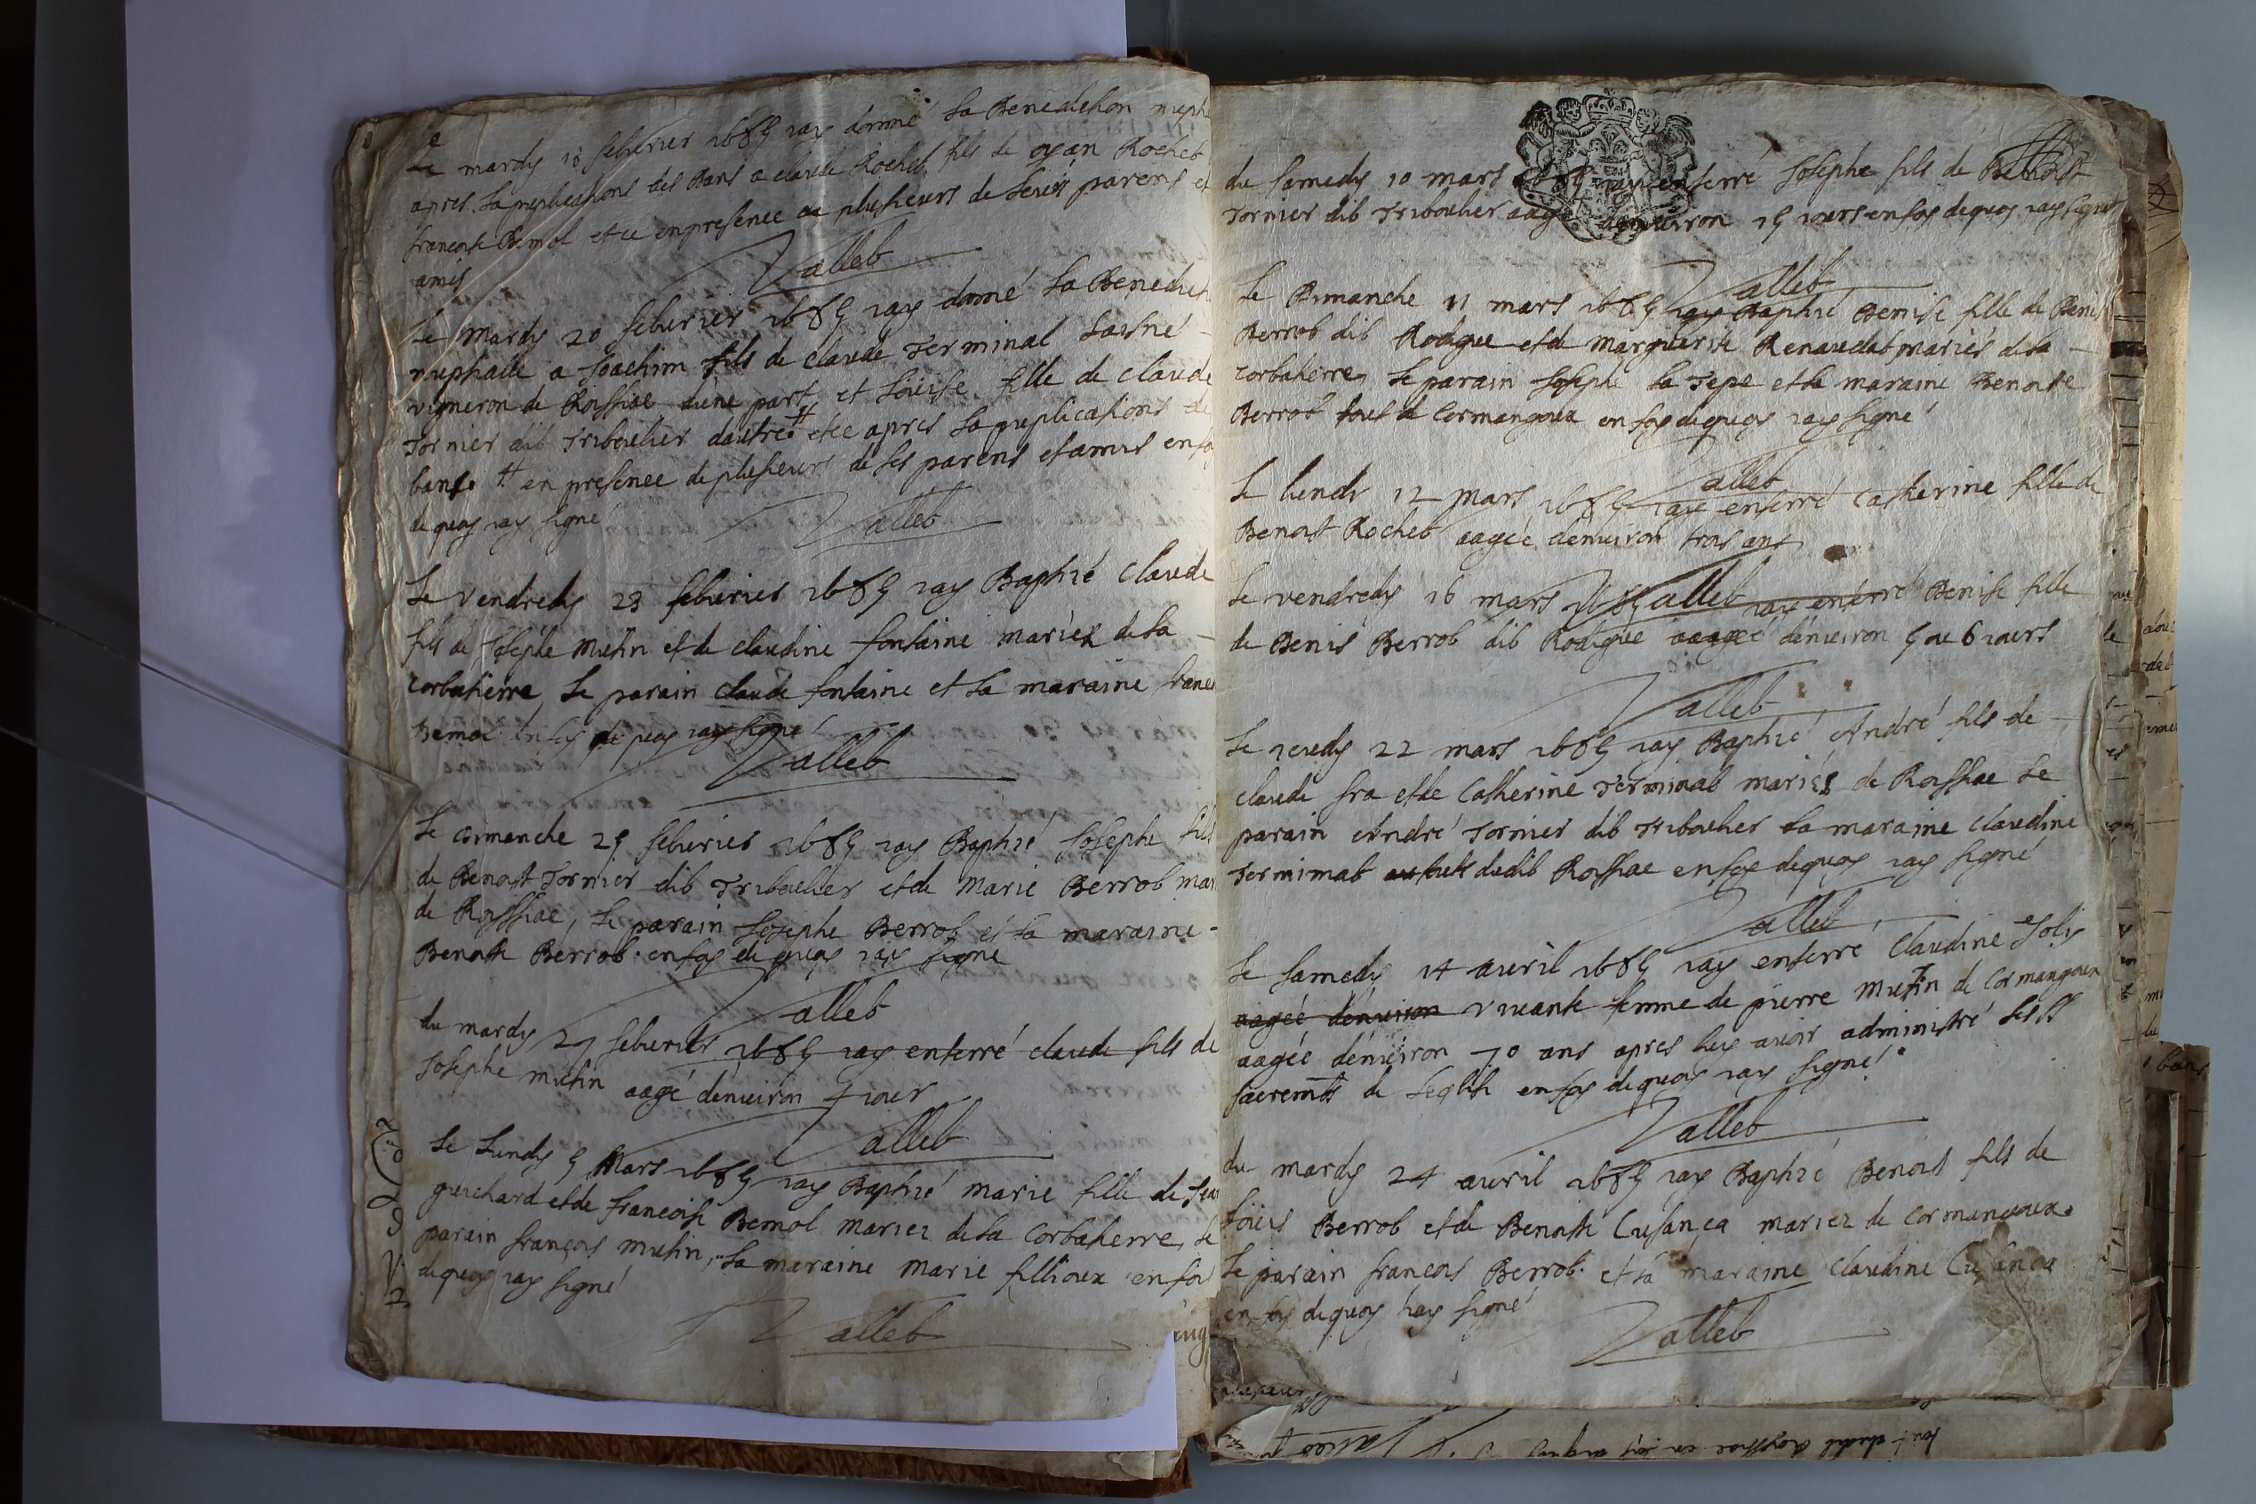 Le mardy 13 feburier 1685 iay donné la Benediction nupti
apres la puplications des Bans a claude Rochet fils de oyan Rochet
francoise Bemol et ce en presence de plusieurs de leurs parens et
amis
Vallet
Le mardy 20 feburier 1685 iay donné la Benedict
nuptialle a Joachim fils de claude Terminal laisné
vigneron de Roissiae dune part et Loüise fille de claude
Tornier dit Triboulier dautre # et ce apres la puplications de
bans. # en presence de plusieurs de ses parens et amis en fo
de quoy iay signé
Vallet
Le vendredy 23 feburier 1685 iay Baptizé claude
fils de Josephe Mutin et de claudine fontaine mariez de la
corbatierre, le parain claude fontaine et la maraine franc
Bemol en foy de quoy iay signé
Vallet
Le dimanche 25 feburier 1685 iay Baptizé Josephe fils
de Benoist Tornier dit Triboulier et de Marie Berrot mar
de Roissiae, le parain Josephe Berrot et la maraine
Benoite Berrot. en foy de quoy iay signé
Vallet
du mardy 27 feburier 1685 iay enterré claude fils de
Josephe mutin aagé denuiron 4 iour
Vallet
Le Lundy 5 Mars 1685 iay Baptizé marie fille de Jean
guichard et de francoise Bemol mariez de la Corbatierre, le
parain françois mutin, la maraine marie fillioux en foy
de quoy iay signé
Vallet
du samedy 10 mars 1685 iay enterré Josephe fils de Benoist
Tornier dit Triboulier aagé denuiron 15 iours en foy de quoy iay signé
Vallet
Le Dimanche 11 mars 1685 iay Baptizé Denise fille de Denis
Berrot dit Rodigue et de Marguerite Renaudat mariés de la
corbatierre, le parain Josephe la Tepe et la maraine Benoite
Berrot tous de Cormangoux en foy de quoy iay signé
Vallet
Le lundy 12 mars 1685 iay enterré Catherine fille de
Benoist Rochet aagée denuiron trois ans
Vallet
Le vendredy 16 mars 1685 iay enterré Denise fille
de Denis Berrot dit Rodigue aagée denuiron 5 ou 6 iours
Vallet
Le ieudy 22 mars 1685 iay Baptizé André fils de
claude fra et de Catherine Terminal mariés de Roissiae le
parain André Tornier dit Triboulier la maraine Claudine
Terminat dudit Roissiae en foy de quoy iay signé
Vallet
Le samedy 14 auril 1685 iay enterré Claudine Joly
aagée denuiron viuante femme de pierre Mutin de Cormangoux
aagée denuiron 70 ans apres luy auoir administré les SS
sacremts de leglise en foy de quoy iay signé
Vallet
du mardy 24 auril 1685 iay Baptizé Benoist fils de
Loüis Berrot et de Benoite Cusança mariez de Cormangoux.
Le parain francois Berrot. et la maraine Claudine Cusança
en foy de quoy iay signé
Vallet